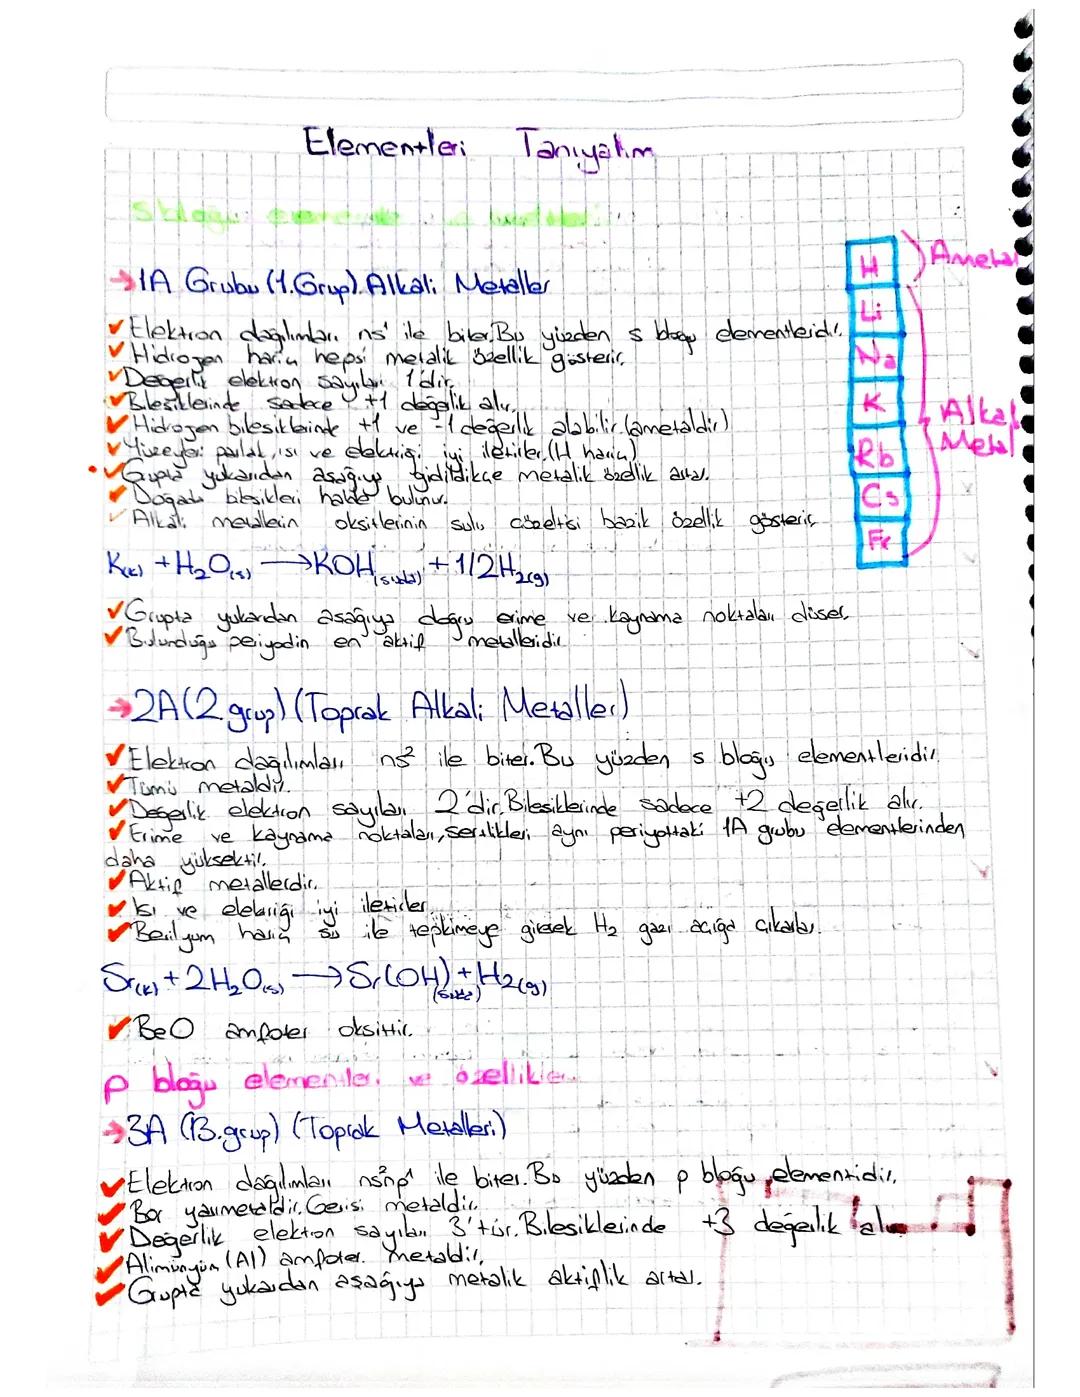 Elementleri Tanıyalım
s bloğu
→1A Grubu (1.Grup) Alkali Metaller
✓Elektron dağılımları ns¹ ile biter.Bu yüzden s bloğu elementleridir.
✓Hidrojen hariç hepsi metalik özellik gösterir.
✓Değerlik elektron sayıları 1'dir.
✓Bileşiklerinde sadece +1 değerlik alır.
✓Hidrojen bileşiklerinde +1 ve -1 değerlik alabilir.(ametaldir)
✓Yüzeyleri parlak, ısı ve elektriği iyi iletirler.(H hariç)
✓Grupta yukarıdan aşağıya gidildikçe metalik özellik artar.
✓Doğada bileşikleri halde bulunur.
✓Alkali metallerin oksitlerinin sulu çözeltisi bazik özellik gösterir.
K(k) + H₂O(s) → KOH(suda) + 1/2H₂(g)
✓Grupta yukarıdan aşağıya doğru erime ve kaynama noktaları düşer.
✓Bulunduğu periyodin en aktif metalleridir.
H
Li
Na
K
Rb
Cs
Fr
Ametal
Alkali
Metal
→2A(2.grup) (Toprak Alkali Metaller)
✓Elektron dağılımları ns² ile biter.Bu yüzden s bloğu elementleridir.
✓Tümü metaldir.
✓Değerlik elektron sayıları 2'dir.Bileşiklerinde sadece +2 değerlik alır.
✓Erime ve kaynama noktaları, sertlikleri aynı periyottaki 1A grubu elementlerinden
daha yüksektir.
✓Aktif metallerdir.
✓Isı ve elektriği iyi iletirler.
✓Berilyum hariç su ile tepkimeye girerek H₂ gazı açığa çıkarlar.
Sr(k) + 2H₂O(s) → Sr(OH)(suda) + H₂(g)
✓BeO amfoter oksittir.
p bloğu elementleri ve özellikleri
→3A (13.grup) (Toprak Metalleri)
✓Elektron dağılımları ns²np¹ ile biter.Bu yüzden p bloğu elementidir.
✓Bor yarımetaldir.Gerisi metaldir.
✓Değerlik elektron sayıları 3'tür.Bileşiklerinde +3 değerlik alır
✓Alimünyum (Al) amfoter metaldir.
✓Grupta yukarıdan aşağıya metalik aktiflik artar.